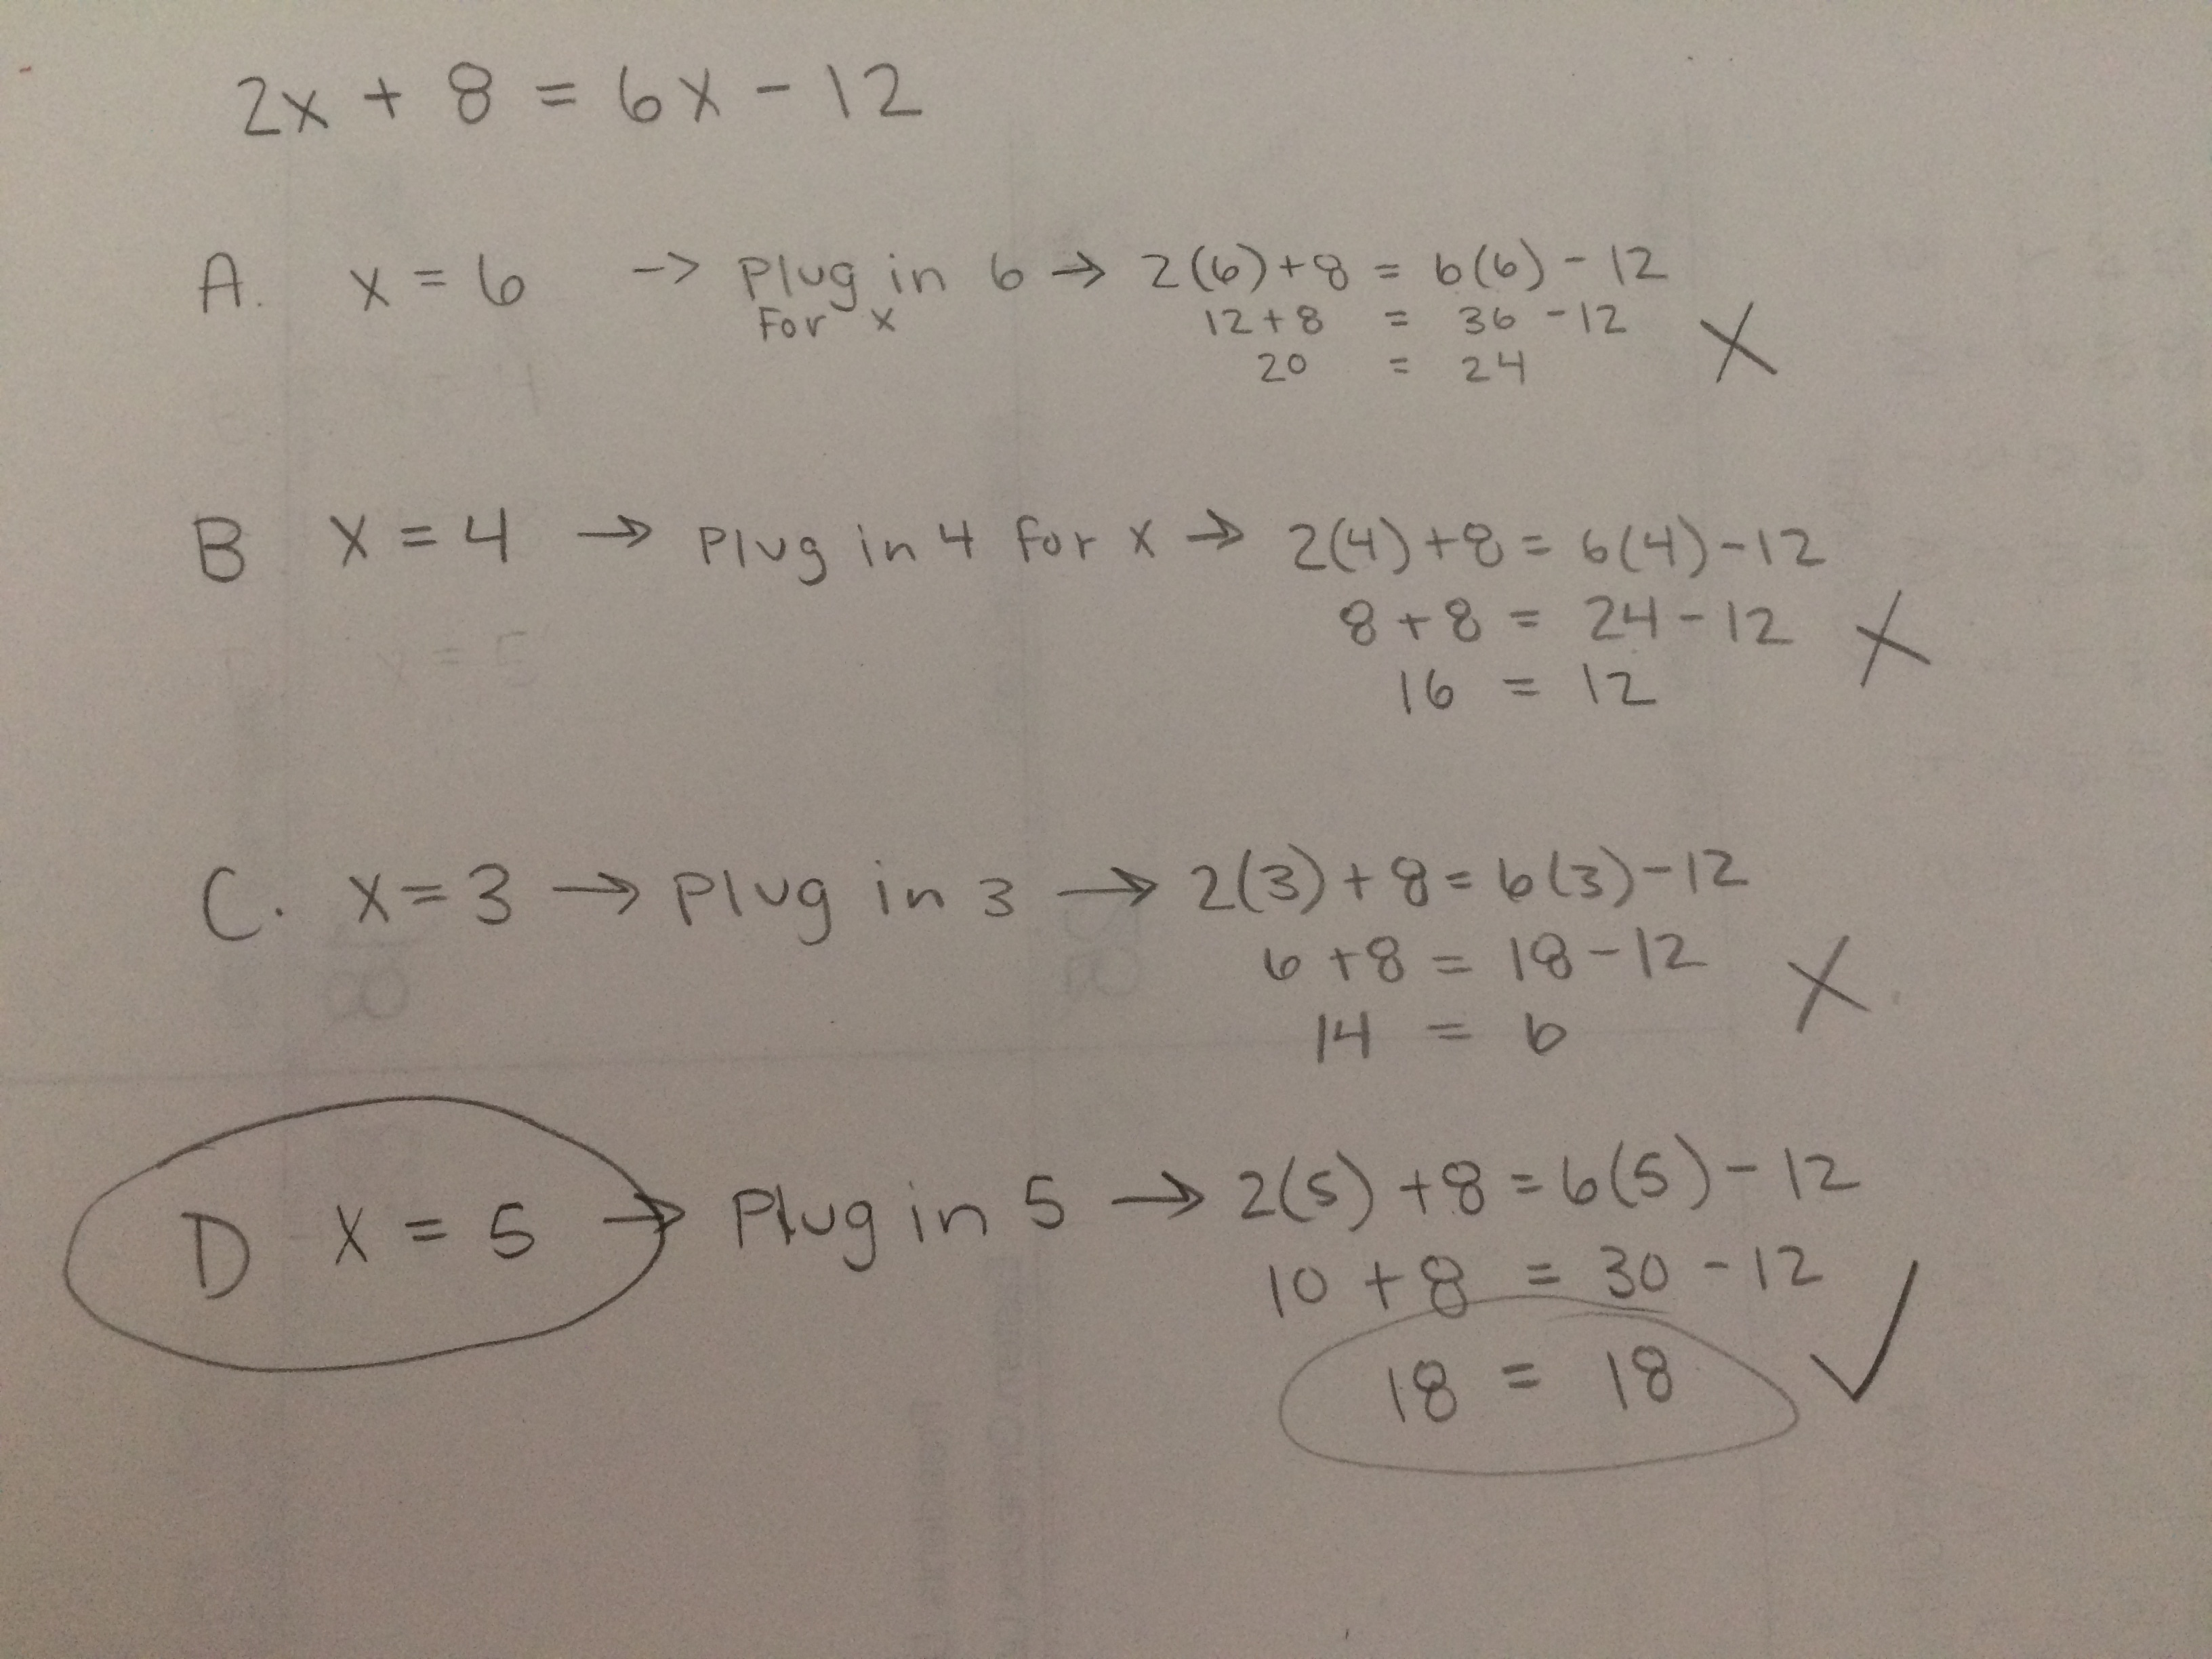 2x + 8 = 6x - 12
A. x = 6 -> Plug in 6 → 2(6)+8 = 6(6) - 12
For x 12+8 = 36 - 12 X
20 = 24
B x = 4 → Plug in 4 for x → 2(4)+8 = 6(4)-12
8 + 8 = 24 - 12 X
16 = 12
C. x = 3 → Plug in 3 → 2(3) + 8 = 6(3) - 12
6 + 8 = 18 - 12 X
14 = 6
D x = 5 → Plug in 5 → 2(5) + 8 = 6(5) - 12
10 + 8 = 30 - 12 ✓
18 = 18
x = 5